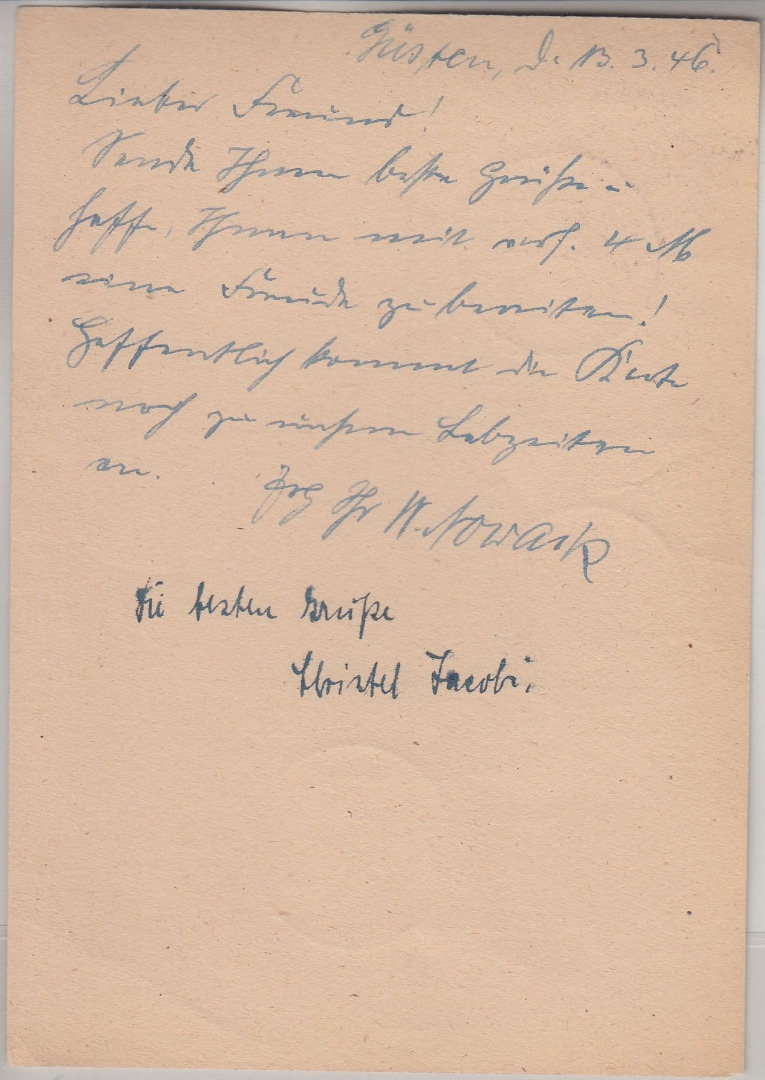 Güsten, d. 13. 3. 46.
Lieber Freund!
Sende Ihnen beste Grüße u.
hoffe, Ihnen mit 4 M
eine Freude zu bereiten!
Hoffentlich kommt die Karte
noch zu unseren Lebzeiten
an. Ihr W. Nowack
Die besten Grüße
Christel Jacobi.